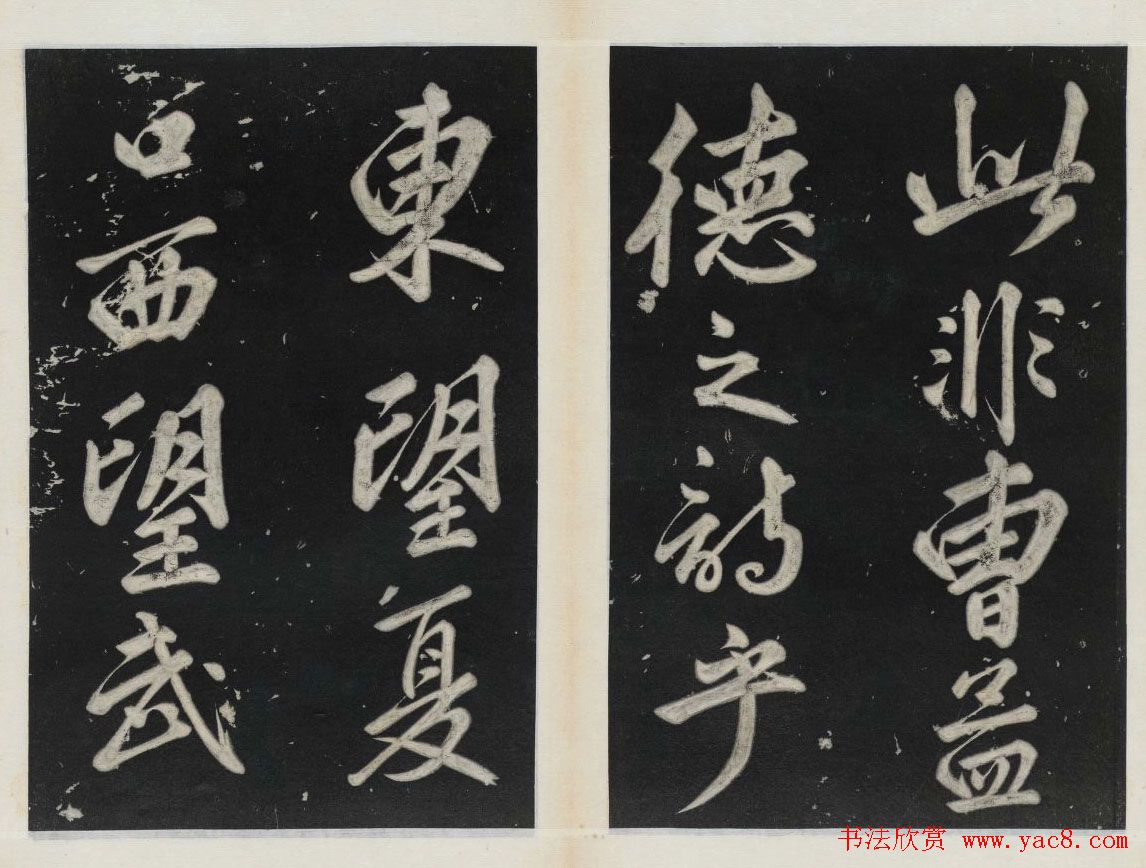 此非曹孟
德之詩乎
東望夏
口西望武
书法欣赏 www.yac8.com